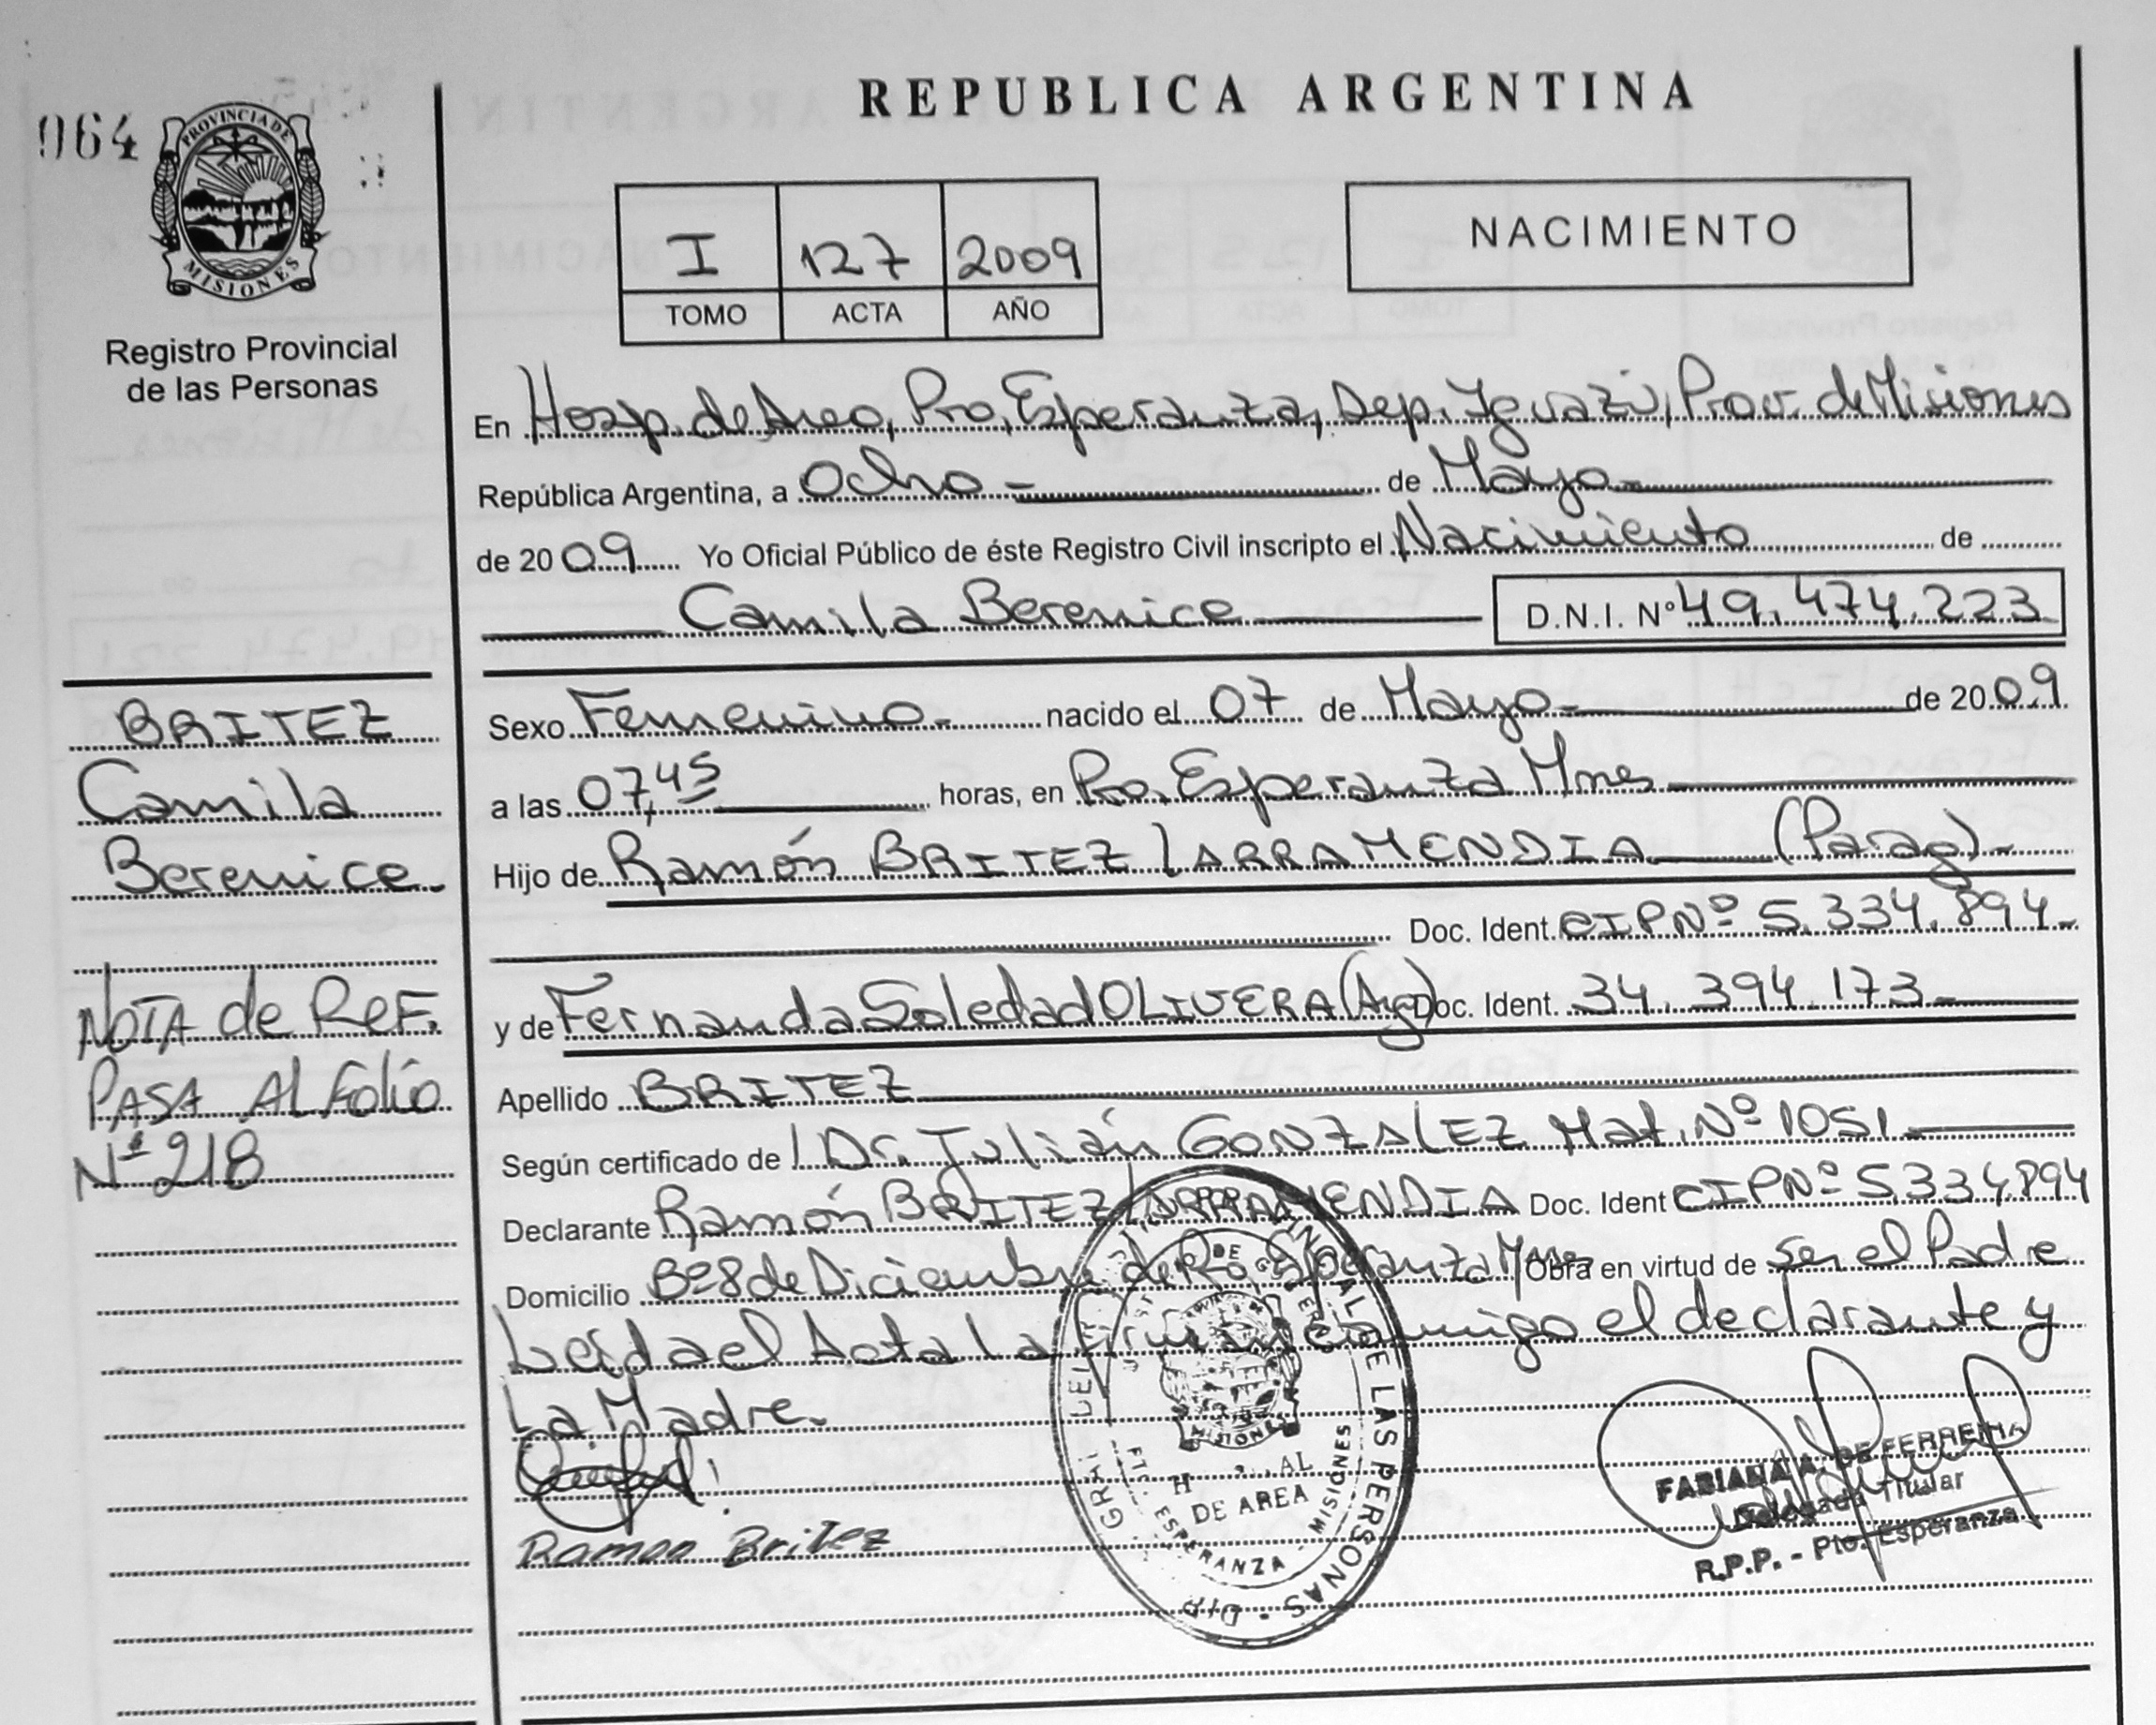 REPUBLICA ARGENTINA
064
PROVINCIA DE
MISIONES
Registro Provincial
de las Personas
I 127 2009
TOMO ACTA AÑO
NACIMIENTO
En Hosp. de Area, Pto. Esperanza, Dep. Iguazú, Prov. de Misiones
República Argentina, a Ocho - de Mayo -
de 2009 Yo Oficial Público de éste Registro Civil inscripto el Nacimiento de
Camila Berenice D.N.I. Nº 49.474.223
Sexo Femenino - nacido el 07 de Mayo - de 2009
a las 07,45 horas, en Pto. Esperanza Mnes
Hijo de Ramón BRITEZ LARRAMENDIA (Parag) -
Doc. Ident. CIPNº 5.334.894 -
y de Fernanda Soledad OLIVERA (Arg) Doc. Ident. 34.394.173 -
Apellido BRITEZ
Según certificado de Dr. Julián GONZALEZ Mat. Nº 1051
Declarante Ramón BRITEZ LARRAMENDIA Doc. Ident CIPNº 5.334.894
Domicilio Bº 8 de Diciembre de Pto Esperanza Mnes Obra en virtud de ser el Padre
Leida el Acta la firma conmigo el declarante y
La Madre.
Ramon Britez
BRITEZ
Camila
Berenice
NOTA de REF.
PASA Al Folio
Nº 218
DE LAS PERSONAS - DIR
DE AREA
ESPERANZA - MISIONES
MISIONES
FABIANA A. DE FERREIRA
Delegada Titular
R.P.P. - Pto. Esperanza